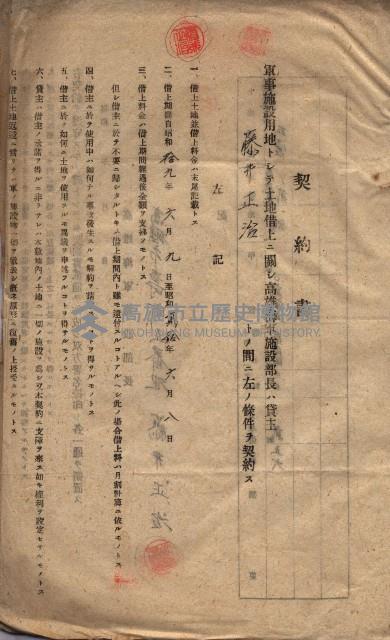 契約書
軍事施設用地トシテ土地借上ニ關シ高雄海軍施設部長ハ貸主
藤井正治
トノ間ニ左ノ條件ヲ契約ス
左記
一、借上土地並借上料金ハ末尾記載トス
二、借上期間自昭和拾九年六月九日至昭和貳拾年六月八日
三、借上料金ハ借上期間經過後全額ヲ支拂フモノトス
但シ借主ニ於テ不要ニ歸シタルトキハ借上期間内ト雖モ還付スルコトアルヘシ此ノ場合借上料ハ月割計算ニ依ルモノトス
四、借主ニ於テ使用中ハ如何ナル事故發生スルモ解約ヲ請フコトヲ得サルモノトス
五、借主ニ於テ如何ニ土地ヲ使用スルモ異議ヲ申述フルコトヲ得サルモノトス
六、貸主ハ借主ノ承諾ヲ得ルニ非サレハ本敷地内ノ土地ニ一切ノ施設ヲ爲シ又本契約ニ支障ヲ來ス如キ權利ヲ設定セサルモノトス
七、借上土地返還ニ際シテハ
高雄市立歷史博物館
KAOHSIUNG MUSEUM OF HISTORY